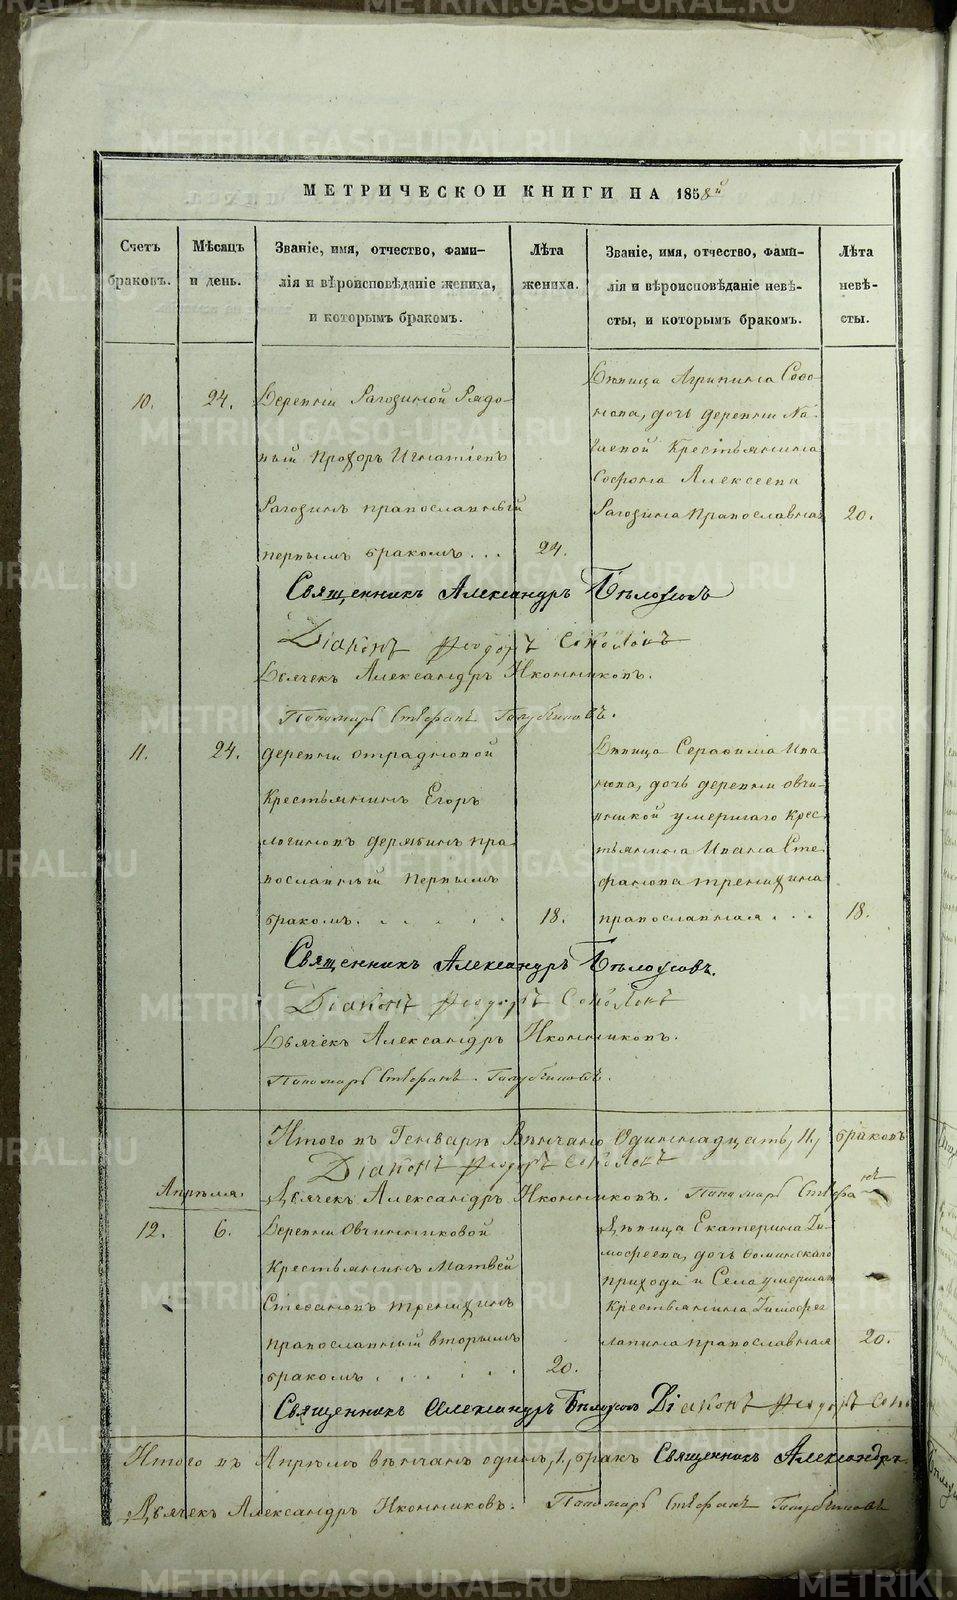 МЕТРИЧЕСКОИ КНИГИ НА 1858й
Счетъ браковъ.
Мѣсяцъ и день.
Званіе, имя, отчество, фами-
лія и вѣроисповѣданіе жениха,
и которымъ бракомъ.
Лѣта жениха.
Званіе, имя, отчество, фами-
лія и вѣроисповѣданіе невѣ-
сты, и которымъ бракомъ.
Лѣта невѣ-
сты.
10. 24.
Деревни Рагозиной Рядо-
вый Прохоръ Игнатіевъ
Рагозинъ православный
первымъ бракомъ...
24.
Дѣвица Агрипина Софо-
нова, дочь деревни
Крестьянина
Софона Алексеева
Рагозина Православная
20.
Священникъ Александръ Бѣлоусовъ
Діаконъ Ѳеодоръ Соколовъ
Дьячекъ Александръ Иконниковъ.
Пономарь Стефанъ Голубчиковъ.
11. 24.
деревни отрадновой
Крестьянинъ Егоръ
логиновъ дерябинъ пра-
вославный Первымъ
бракомъ. . . . . .
18.
Дѣвица Серафима Ива-
нова, дочь деревни овчи-
никой умершаго Крес-
тьянина Ивана Сте-
фанова тренихина
православная . . .
18.
Священникъ Александръ Бѣлоусовъ.
Діаконъ Ѳеодоръ Соколовъ
Дьячекъ Александръ Иконниковъ.
Пономарь Стефанъ Голубчиковъ.
Итого въ Генварѣ Вѣнчано Одиннадцать, 11, браковъ
Діаконъ Ѳеодоръ Соколовъ
Дьячекъ Александръ Иконниковъ. Пономарь Стефанъ
Апрѣля
12. 6.
Деревни Овчинниковой
Крестьянинъ Матвей
Стефановъ тренихинъ
православный вторымъ
бракомъ . . . . . .
20.
Дѣвица Екатерина Ти-
мофеева, дочь Фоминскаго
прихода и Села умершаго
Крестьянина Тимофея
лапина православная
20.
Священникъ Александръ Бѣлоусовъ Діаконъ Ѳеодоръ
Итого въ Апрѣлѣ вѣнчанъ одинъ, 1, бракъ Священникъ Александръ
Дьячекъ Александръ Иконниковъ. Пономарь Стефанъ Голубчиковъ
METRIKI.GASO-URAL.RU